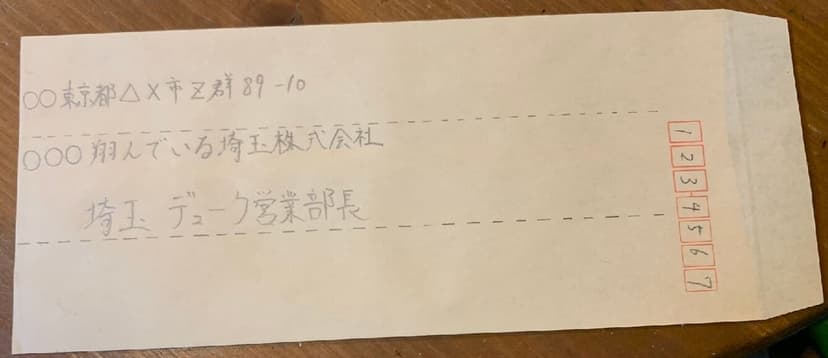 ○○東京都△X市Z群89-10
○○○翔んでいる埼玉株式会社
埼玉 デューク営業部長
1234567